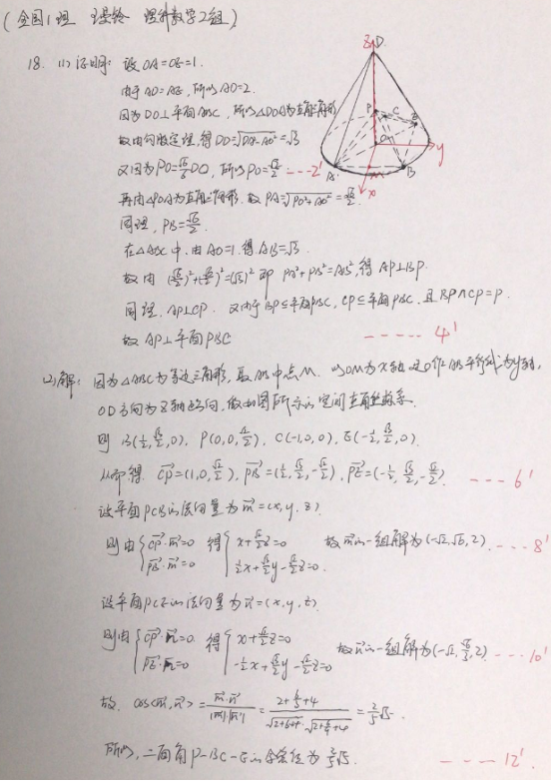 (全国1理 理科数学2组)
18. (1) 证明: 设OA=OE=1.
由于AD=AE, 所以AD=2.
因为DO⊥平面ABC, 所以△DOA为直角三角形
故由勾股定理, 得DO=√(DA²-AO²)=√3
又因为PO=√6/6 DO, 所以PO=√2/2 ---2'
再由△POA为直角三角形, 故PA=√(PO²+AO²)=√6/2.
同理, PB=√6/2.
在△ABC中, 由AO=1, 得AB=√3.
故由(√6/2)²+(√6/2)²=(√3)² 即 PA²+PB²=AB², 得AP⊥BP.
同理, AP⊥CP. 又由于BP⊆平面PBC, CP⊆平面PBC, 且BP∩CP=P.
故AP⊥平面PBC ----- 4'
(2) 解: 因为△ABC为等边三角形, 取AB中点M. 以OM为x轴, 过O作AB平行线为y轴,
OD方向为z轴方向, 做如图所示的空间直角坐标系.
则 B(1/2, √3/2, 0), P(0,0,√2/2), C(-1,0,0), E(-1/2, √3/2, 0).
从而得. CP=(1,0,√2/2), PB=(1/2, √3/2, -√2/2), PE=(-1/2, √3/2, -√2/2). ---6'
设平面PCB的法向量为m=(x,y,z)
则由{CP·m=0 PB·m=0 得{x+√2/2 z=0 1/2 x+√3/2 y-√2/2 z=0. 故m的一组解为(-√2,√6,2). ---8'
设平面PCE的法向量为n=(x,y,z)
则由{CP·n=0 PE·n=0 得{x+√2/2 z=0 -1/2 x+√3/2 y-√2/2 z=0 故n的一组解为(-√2, √6/3, 2) ---10'
故. cos<m,n>=m·n/|m||n|=(2+6/3+4)/(√(2+6+4)·√(2+6/9+4))=2/5 √5.
所以, 二面角P-BC-E的余弦值为2/5 √5. ---12'
z
D
P
C
E
O
y
A
M
B
x